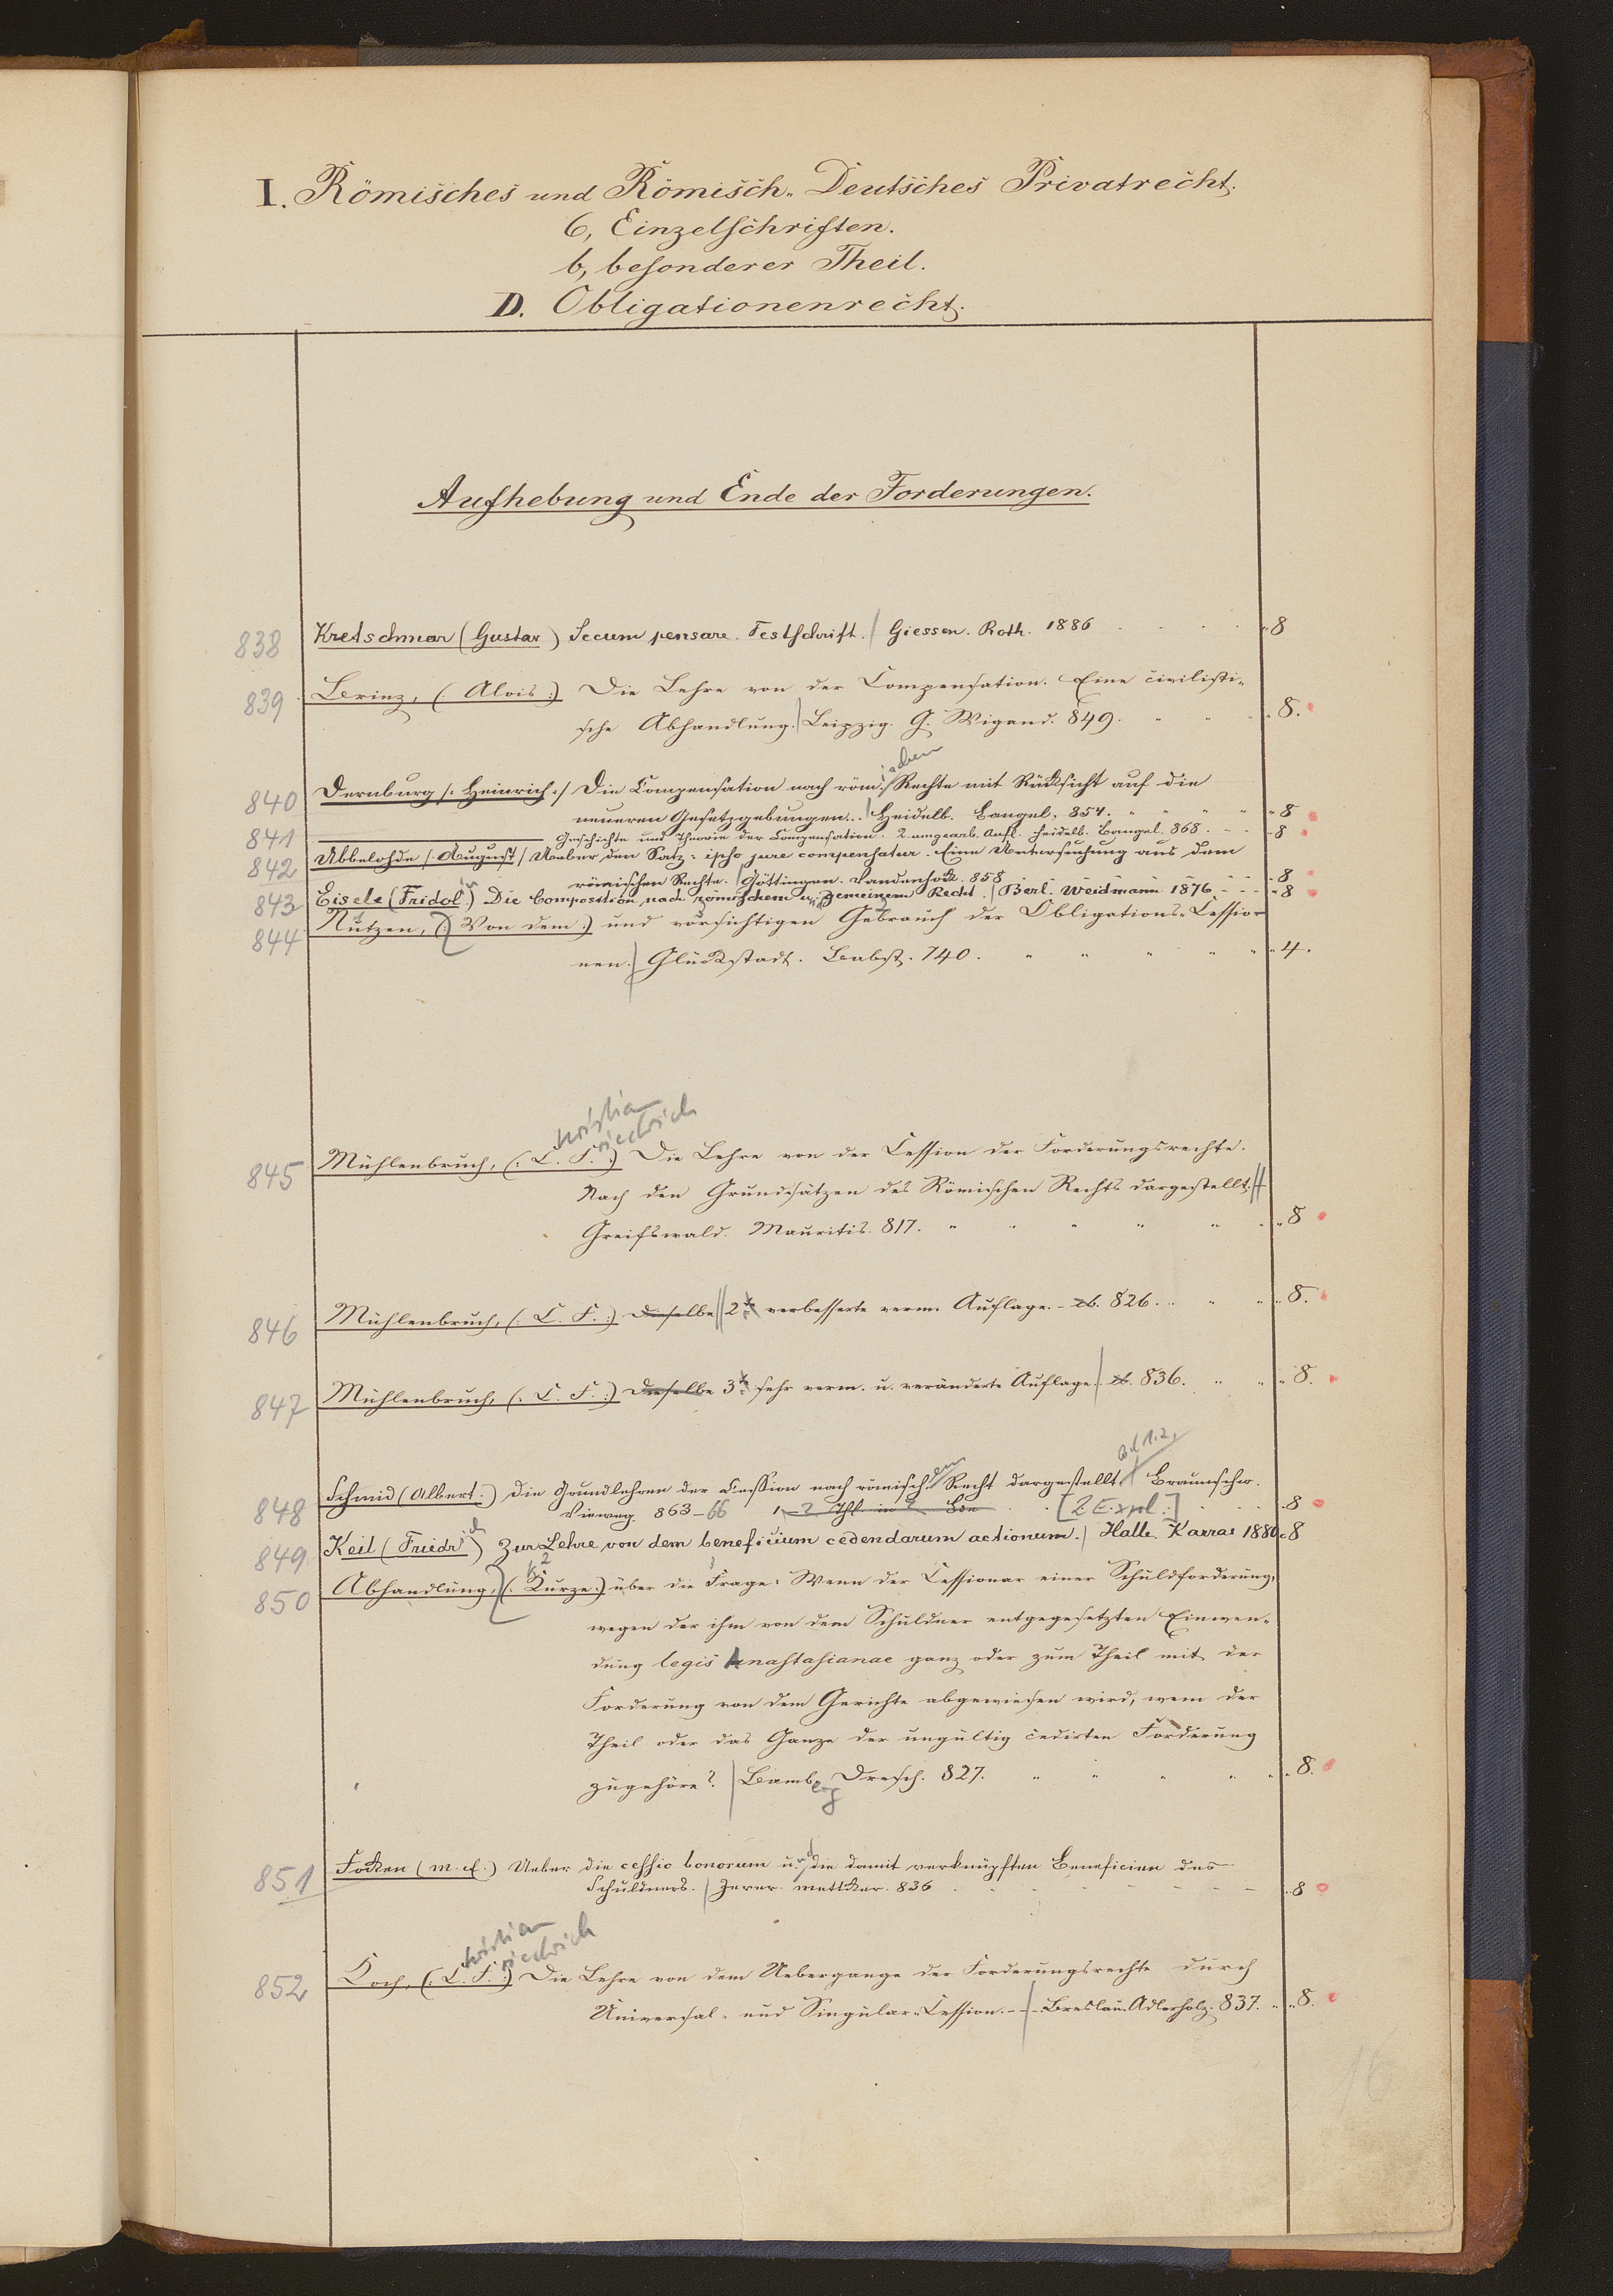 I. Römisches und Römisch-Deutsches Privatrecht.
6, Einzelschriften.
b, besonderer Theil.
D. Obligationenrecht.
Aufhebung und Ende der Forderungen.
838 Kretschmar (Gustav) Secum pensare. Festschrift. / Giessen. Roth. 1886 8
839 Brinz, (: Alois :) Die Lehre von der Compensation. Eine civilisti-
sche Abhandlung. / Leipzig. G. Wigand. 849. 8.
ischen
840 Dernburg /: Heinrich :/ Die Compensation nach röm. Rechte mit Rücksicht auf die
neueren Gesetzgebungen. / Heidelb. Bangel. 854. 8
841 Geschichte und Theorie der Compensation. 2. umgearb. Aufl. Heidelb. Bangel. 868. 8
842 Ubbelohde /: August / Ueber den Satz: ipso jure compensatur. Eine Untersuchung aus dem
römischen Rechte. / Göttingen. Vandenhoek. 858 8
843 Eisele (Fridolin) Die Composition nach römischem u. gemeinem Recht. / Berl. Weidmann 1876 8
844 Nutzen, (: Von dem :) und vorsichtigen Gebrauch der Obligations-Cessio-
nen. / Glückstadt. Babst. 740. 4.
hristian
riedrich
845 Mühlenbruch, (: C. F. :) Die Lehre von der Cession der Forderungsrechte.
Nach den Grundsätzen des Römischen Rechts dargestellt. //
Greifswald. Mauritis. 817. 8
846 Mühlenbruch, (: C. F. :) Dieselbe // 2te verbesserte verm. Auflage. - eb. 826. 8.
847 Mühlenbruch, (: C. F. :) Dieselbe 3te sehr verm. u. veränderte Auflage. / eb. 836. 8.
Bd 1.2,
848 Schmid (Albert.) Die Grundlehren der Cession nach römischem Recht dargestellt / Braunschw.
Vieweg. 863-66 1-2 Thl in 2 Bde [2 Expl.] 8
849 Keil (Friedrich) Zur Lehre von dem beneficium cedendarum actionum. / Halle. Karras 1880. 8
850 Abhandlung, (: Kurze :) über die Frage: Wenn der Cessionar einer Schuldforderung,
wegen der ihm von dem Schuldner entgegesetzten Einwen-
dung legis Anastasianae ganz oder zum Theil mit der
Forderung von dem Gerichte abgewiesen wird, wem der
Theil oder das Ganze der ungültig cedirten Forderung
zugehöre? / Bambg Dresch. 827. 8.
851 Focken (M. E.) Ueber die cessio bonorum und die damit verknüpften Beneficien des
Schuldners. / Jever. Mettker. 836 8
hristian
riedrich
852 Koch, (: C. F. :) Die Lehre von dem Uebergange der Forderungsrechte durch
Universal- und Singular-Cession. - / - Breslau. Adlerholz. 837. 8.
16